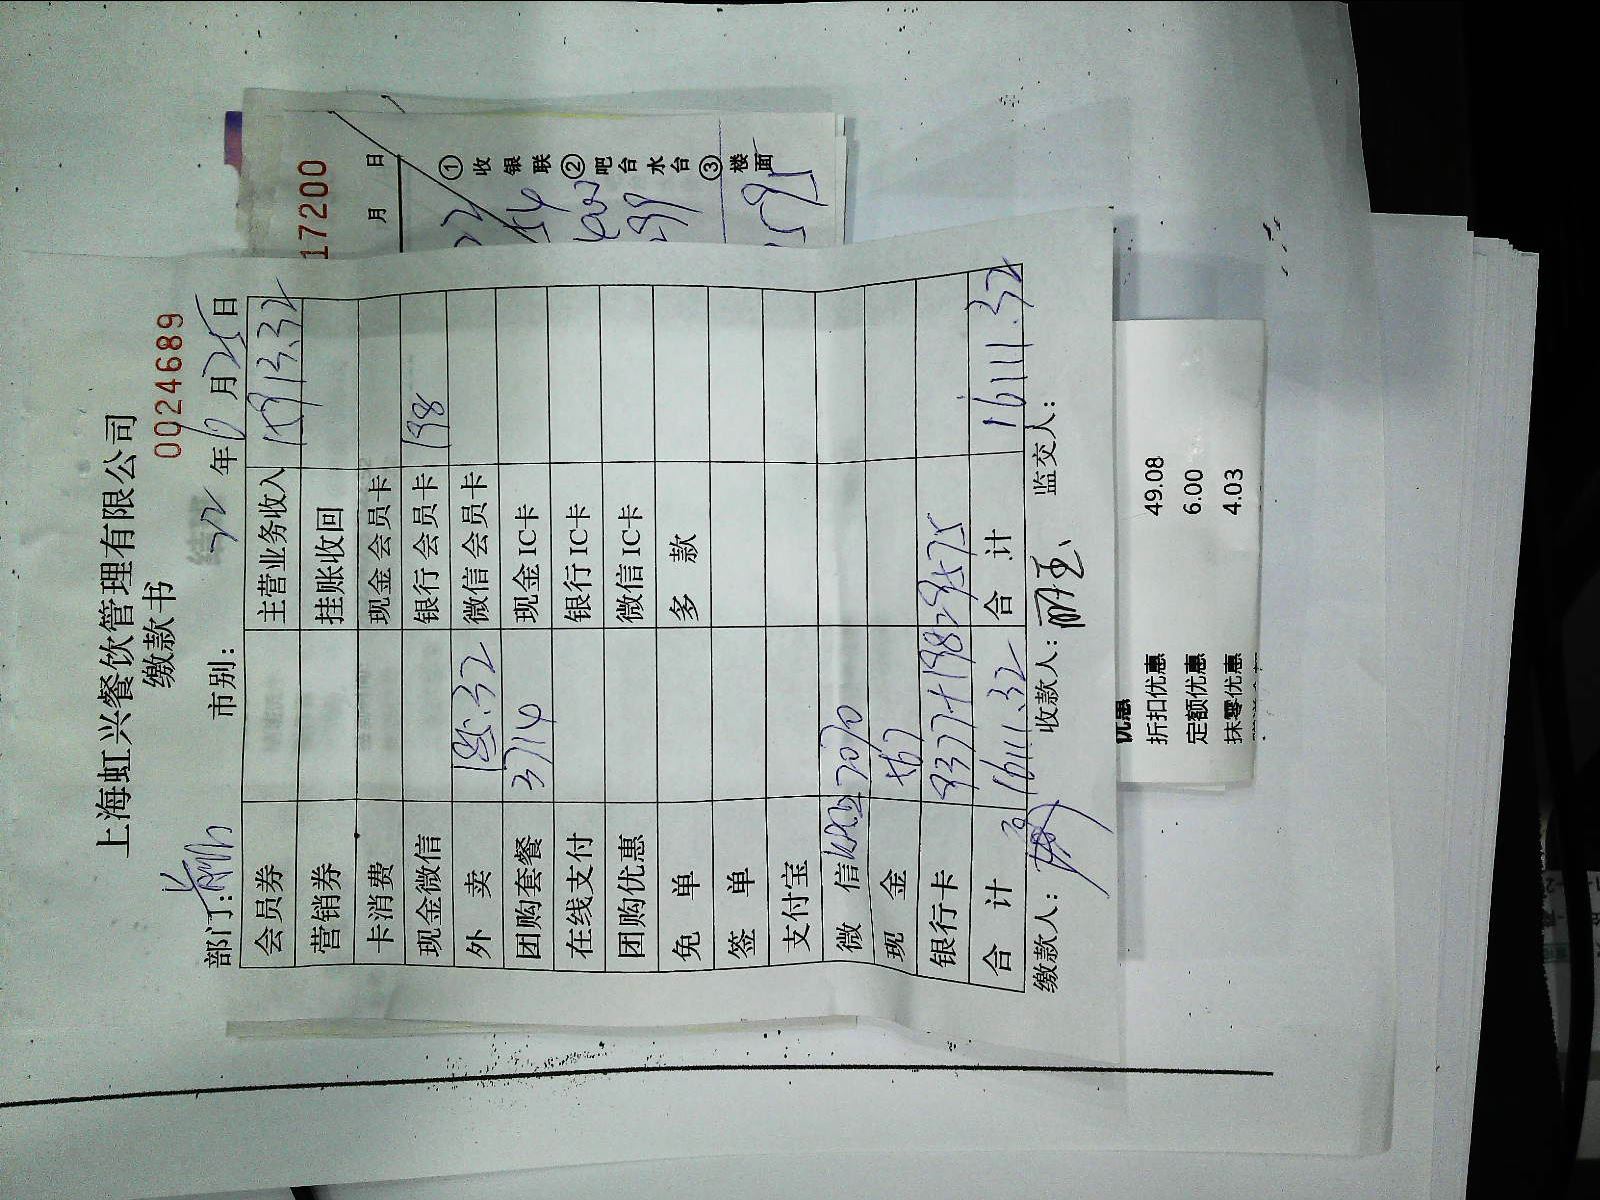 上海虹兴餐饮管理有限公司
缴款书
0024689
部门: 市别: 22 年 6 月 25 日
会员券 主营业务收入 15913.32
营销券 挂账收回
卡消费 现金会员卡
现金微信 银行会员卡 198
外卖 185.32 微信会员卡
团购套餐 3714 现金IC卡
在线支付 银行IC卡
团购优惠 微信IC卡
免单 多款
签单
支付宝
微信 2070
现金 567
银行卡 9377+198 2 9575
合计 16111.32 合计 16111.32
缴款人: 收款人: 监交人:
17200
月 日
①收银联②吧台水台③楼面
优惠
折扣优惠 49.08
定额优惠 6.00
抹零优惠 4.03